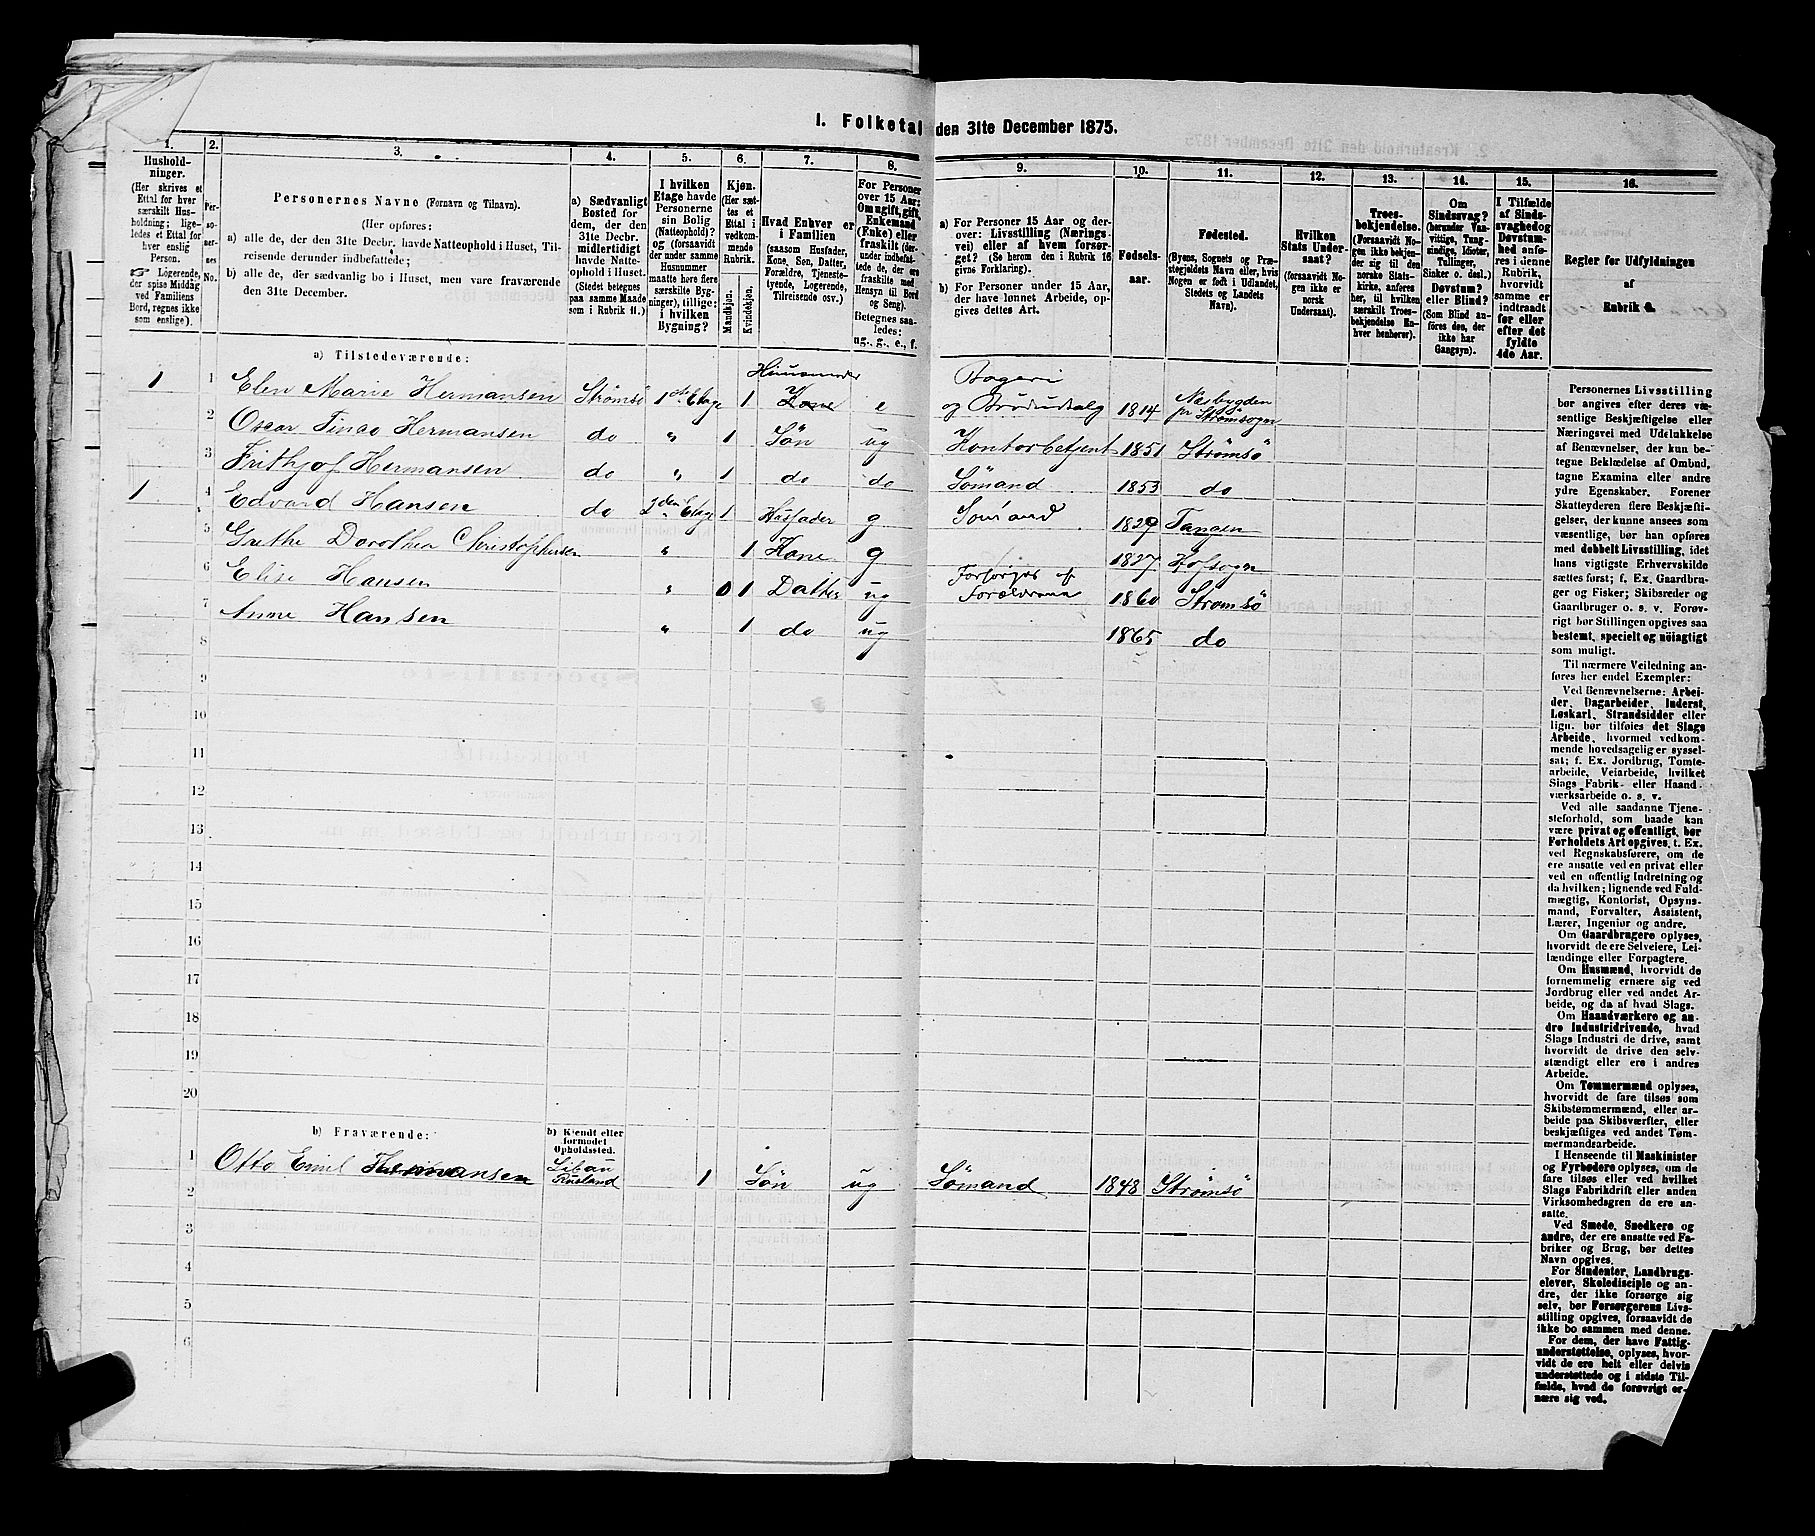 I. Folketal den 31te December 1875.
1. 2. 3. 4. 5. 6. 7. 8. 9. 10. 11. 12. 13. 14. 15. 16.
Hushold-
ninger.
(Her skrives et
Ettal for hver
særskilt Hus-
holdning; lige-
ledes et Ettal for
hver enslig
Person.
☞ Logerende,
der spise Middag
ved Familiens
Bord, regnes ikke
som enslige).
Per-
so-
ner-
nes
No.
Personernes Navne (Fornavn og Tilnavn).
(Her opføres:
a) alle de, der den 31te Decbr. havde Natteophold i Huset, Til-
reisende derunder indbefattede;
b) alle de, der sædvanlig bo i Huset, men vare fraværende
den 31te December.
a) Sædvanligt
Bosted for
dem, der den
31te Decbr.
midlertidigt
havde Natte-
ophold i Huset.
(Stedet betegnes
paa samme Maade
som i Rubrik 11.)
I hvilken
Etage havde
Personerne
sin Bolig
(Natteophold)?
og (forsaavidt
der under samme
Husnummer
maatte høre flere
særskilte Byg-
ninger), tillige:
i hvilken
Bygning?
Kjøn.
(Her sæt-
tes et
Ettal i
vedkom-
mende
Rubrik.
Mandkjøn.
Kvindekjøn.
Hvad Enhver er
i Familien
(saasom Husfader,
Kone, Søn, Datter,
Forældre, Tjeneste-
tyende, Logerende,
Tilreisende osv.)
For Personer
over 15 Aar:
Om ugift, gift,
Enkemand
(Enke) eller
fraskilt (der-
under indbefat-
tede de, ere
fraskilte med
Hensyn til Bord
og Seng).
Betegnes saa-
ledes:
ug., g., e., f.
a) For Personer 15 Aar og der-
over: Livsstilling (Nærings-
vei) eller af hvem forsør-
get? (Se herom den i Rubrik 16
givne Forklaring).
b) For Personer under 15 Aar,
der have lønnet Arbeide, op-
gives dettes Art.
Fødsels-
aar.
Fødested.
(Byens, Sognets og Præ-
stegjeldets Navn eller, hvis
Nogen er født i Udlandet,
Stedets og Landets
Navn).
Hvilken
Stats Under-
saat?
(forsaavidt No-
gen ikke er
norsk
Undersaat).
Troes-
bekjendelse.
(Forsaavidt No-
gen ikke bekjen-
der sig til den
norske Stats-
kirke, anføres
her, til hvilken
særskilt Troes-
bekjendelse En-
hver henhører).
Om
Sindssvag?
(herunder Van-
vittige, Tung-
sindige, Idioter,
Tullinger,
Sinker o. desl.)
Døvstum?
eller Blind?
(Som Blind an-
føres den, der
ikke har
Gangsyn).
I Tilfælde
af Sinds-
svaghed og
Døvstum-
hed anfø-
res i denne
Rubrik,
hvorvidt
samme er
indtraadt
før eller
efter det
fyldte
4de Aar.
Regler for Udfyldningen
af
Rubrik 9.
a) Tilstedeværende:
1 1 Elen Marie Hermansen Strømsö 1ste Etage 1 Huusmoder Kone e Bageri og Brödudsalg 1814 Næsbygden pr Strømsogn
2 Oscar Hermansen do " 1 Søn ug Kontorbetjent 1851 Strømsö
3 Frithjof Hermansen do " 1 do do Sömand 1853 do
1 4 Edvard Hansen do 2den Etage 1 Husfader g Sömand 1829 Tangen
5 Grethe Dorothea Christophersen " 1 Kone g 1827 Hofsogn
6 Elise Hansen " 0 1 Datter ug Forsörges af Forældrene 1860 Strømsö
7 Anne Hansen " 1 do ug 1865 do
8
9
10
11
12
13
14
15
16
17
18
19
20
b) Fraværende:
b) Kjendt eller
formodet
Opholdssted.
1 Otto Emil Hermansen Libau Rusland 1 Søn ug Sömand 1848 Strömsö
2
3
4
5
6
Personernes Livsstilling
bør angives efter deres væ-
sentlige Beskjæftigelse eller
Næringsvei med Udelukkelse
af Benævnelser, der kun be-
tegne Beklædelse af Ombud,
tagne Examina eller andre
ydre Egenskaber. Forener
Skatteyderen flere Beskjæfti-
gelser, der kunne ansees som
væsentlige, bør han opføres
med dobbelt Livsstilling, idet
hans vigtigste Erhvervskilde
sættes først; f. Ex. Gaardbru-
ger og Fisker; Skibsreder og
Gaardbruger o. s. v. Forøv-
rigt bør Stillingen opgives saa
bestemt, specielt og nöiagtigt
som muligt.
Til nærmere Veiledning an-
føres her endel Exempler:
Ved Benævnelserne: Arbei-
der, Dagarbeider, Inderst,
Løskarl, Strandsidder eller
lign. bør tilføies det Slags
Arbeide, hvormed vedkom-
mende hovedsagelig er syssel-
sat; f. Ex. Jordbrug, Tomte-
arbeide, Veiarbeide, hvilket
Slags Fabrik- eller Haand-
værksarbeide o. s. v.
Ved alle saadanne Tjene-
steforhold, som baade kan
være privat og offentligt, bør
Forholdets Art opgives, f. Ex.
ved Regnskabsførere, om de
ere ansatte ved en privat eller
ved en offentlig Indretning og
da hvilken; lignende ved Fuld-
mægtig, Kontorist, Opsyns-
mand, Forvalter, Assistent,
Lærer, Ingeniør og andre.
Om Gaardbrugere oplyses,
hvorvidt de ere Selveiere, Lei-
lændinge eller Forpagtere.
Om Husmænd, hvorvidt de
fornemmelig ernære sig ved
Jordbrug eller ved andet Ar-
beide, og da af hvad Slags.
Om Haandværkere og an-
dre Industridrivende, hvad
Slags Industri de drive, samt
hvorvidt de drive den selv-
stændigt eller ere i andres
Arbeide.
Om Tømmermænd oplyses,
hvorvidt de fare tilsøs som
Skibstømmermænd, eller ar-
beide paa Skibsværfter, eller
beskjæftiges ved andet Tøm-
mermandsarbeide.
I Henseende til Maskinister
og Fyrbødere oplyses, om de
fare tilsøs eller ved hvilket
Slags Fabrikdrift eller anden
Virksomhedsgren de ere an-
satte.
Ved Smede, Snedkere og
andre, der ere ansatte ved Fa-
briker og Brug, bør dettes
Navn opgives.
For Studenter, Landbrugs-
elever, Skoledisciple og an-
dre, der ikke forsørge sig
selv, bør Forsørgerens Livs-
stilling opgives, forsaavidt de
ikke bo sammen med denne.
For dem, der have Fattig-
understøttelse, oplyses, hvor-
vidt de ere helt eller delvis
understøttede og i sidste Til-
fælde, hvad de forøvrigt er-
nære sig ved.